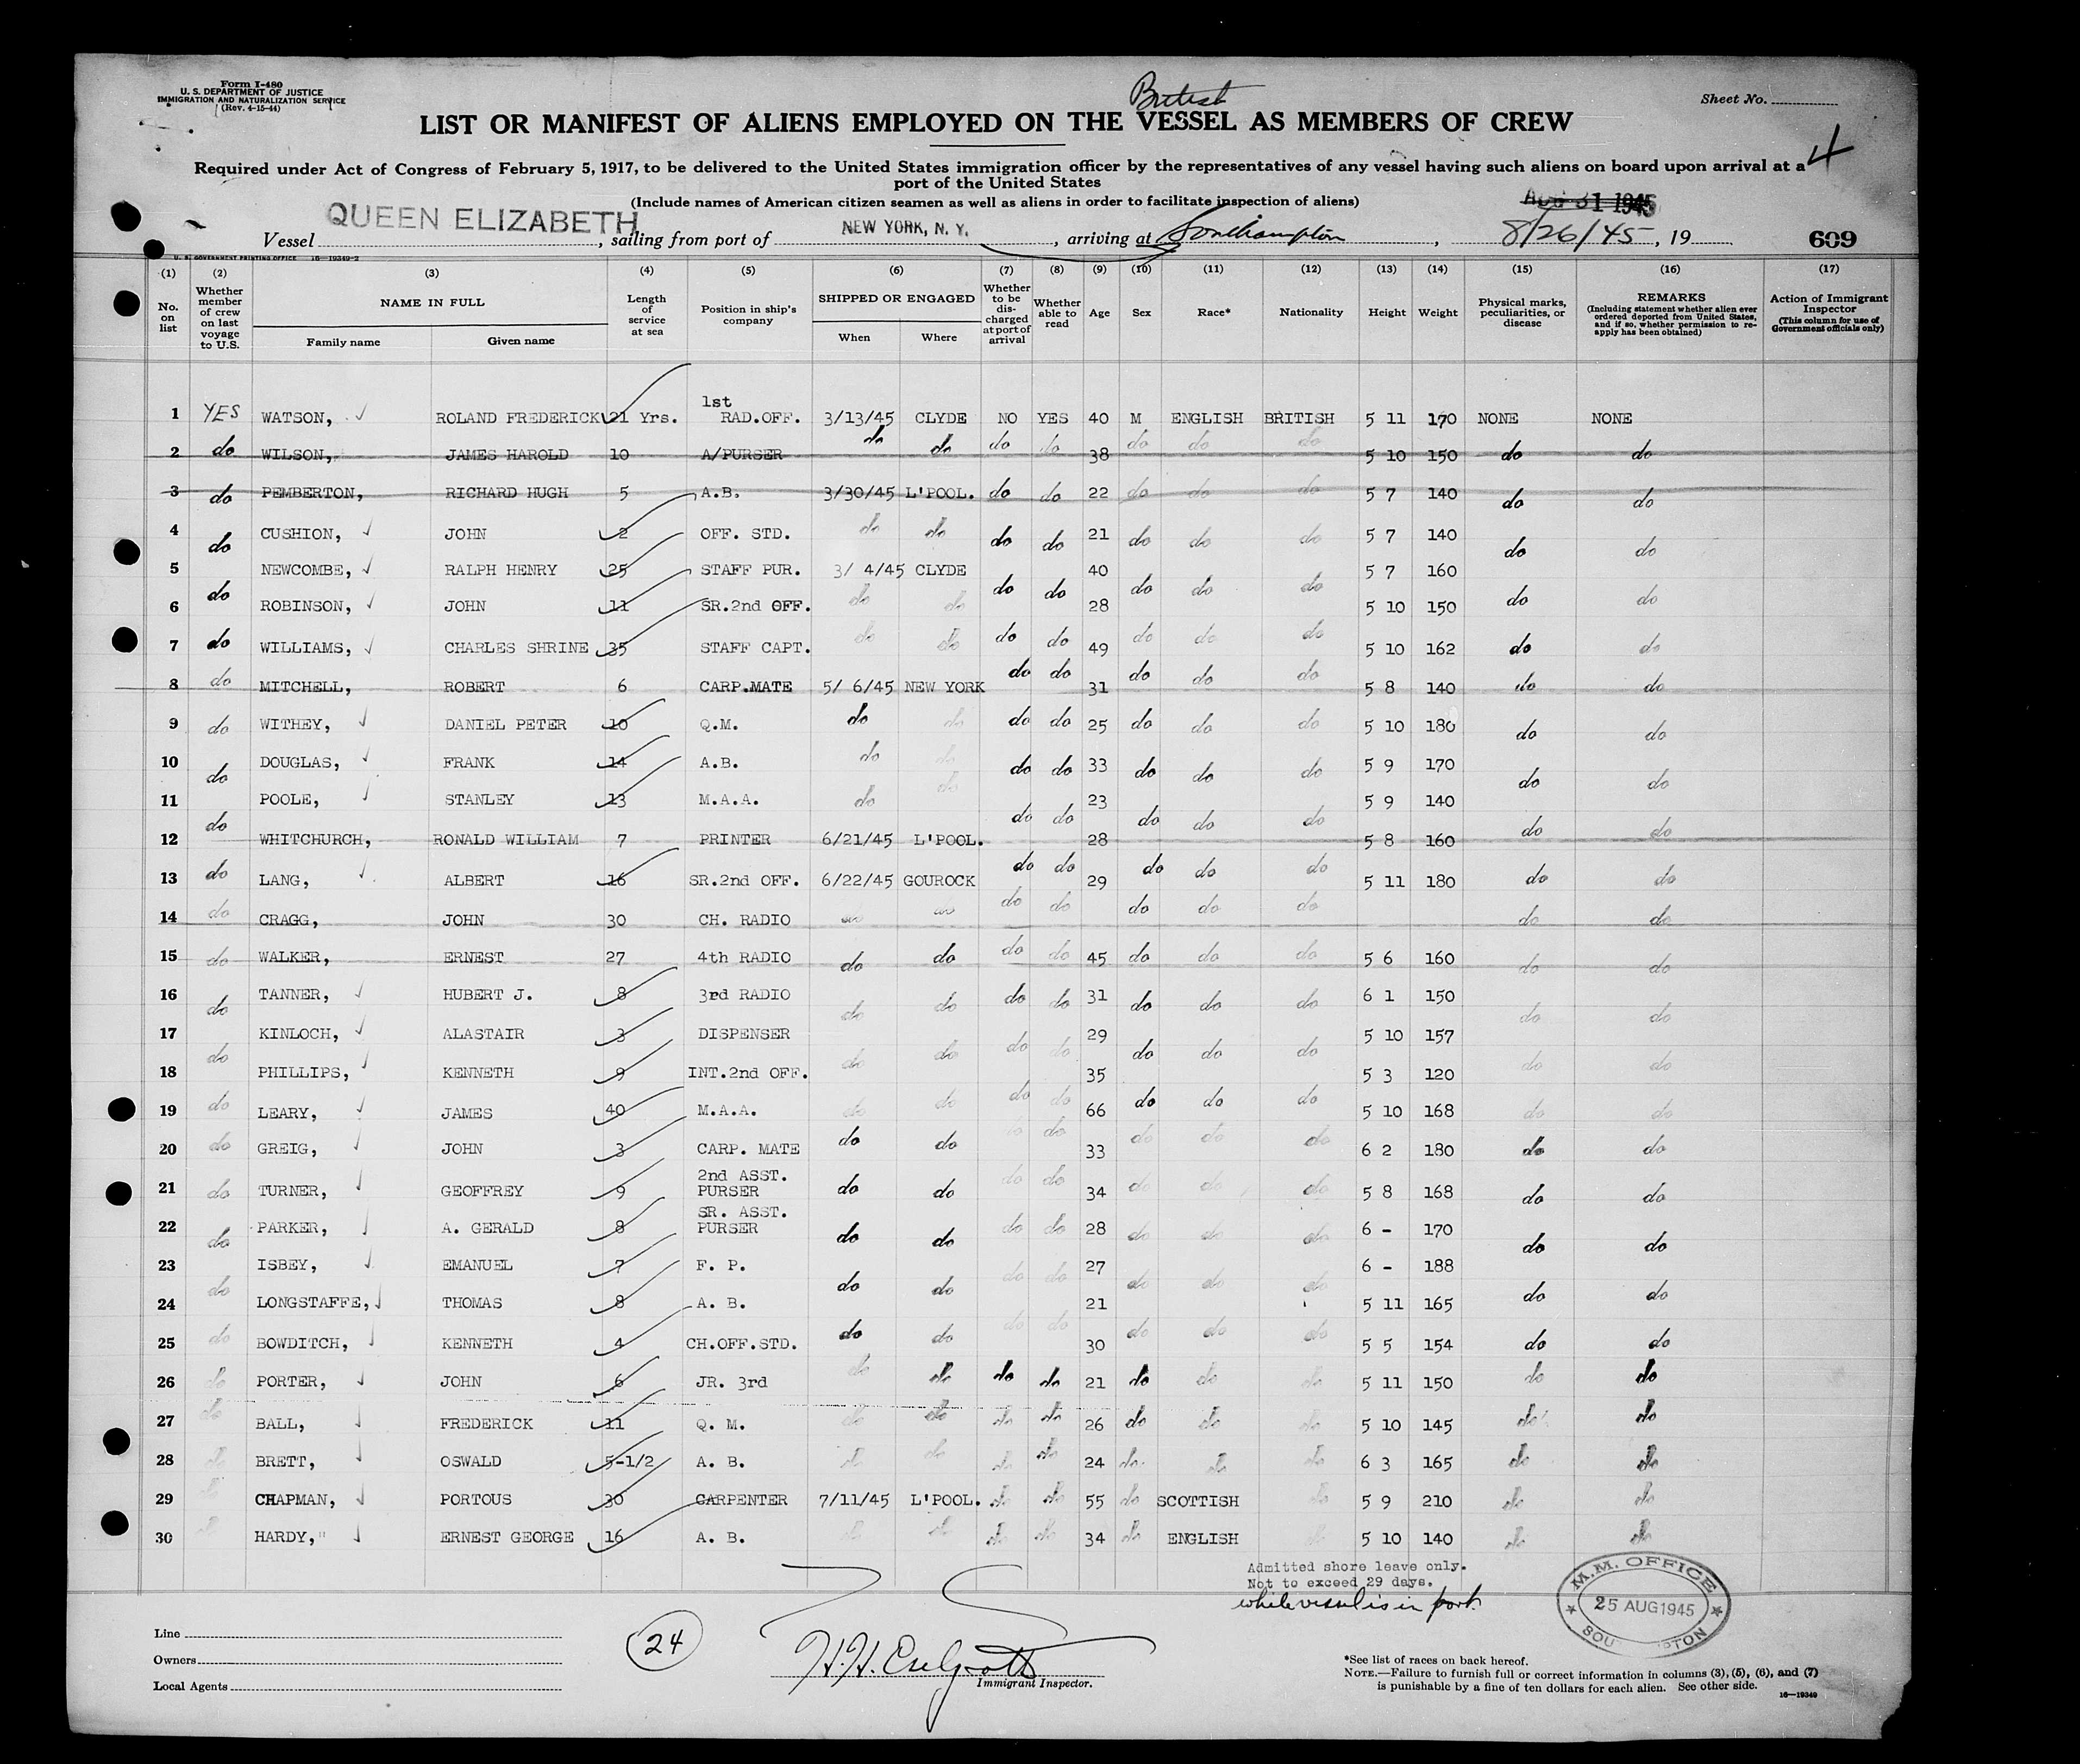 Form I-480
U. S. DEPARTMENT OF JUSTICE
IMMIGRATION AND NATURALIZATION SERVICE
(Rev. 4-15-44)
British
Sheet No.
LIST OR MANIFEST OF ALIENS EMPLOYED ON THE VESSEL AS MEMBERS OF CREW
4
Required under Act of Congress of February 5, 1917, to be delivered to the United States immigration officer by the representatives of any vessel having such aliens on board upon arrival at a
port of the United States
(Include names of American citizen seamen as well as aliens in order to facilitate inspection of aliens)
AUG 31 1945
Vessel QUEEN ELIZABETH, sailing from port of NEW YORK, N. Y., arriving at Southampton, 8/26/45, 19
609
U. S. GOVERNMENT PRINTING OFFICE 16-19349-2
(1) (2) (3) (4) (5) (6) (7) (8) (9) (10) (11) (12) (13) (14) (15) (16) (17)
No. on list
Whether member of crew on last voyage to U.S.
NAME IN FULL
Family name
Given name
Length of service at sea
Position in ship's company
SHIPPED OR ENGAGED
When
Where
Whether to be discharged at port of arrival
Whether able to read
Age
Sex
Race*
Nationality
Height
Weight
Physical marks, peculiarities, or disease
REMARKS
(Including statement whether alien ever ordered deported from United States, and if so, whether permission to reapply has been obtained)
Action of Immigrant Inspector
(This column for use of Government officials only)
1 YES WATSON, ROLAND FREDERICK 21 Yrs. 1st RAD.OFF. 3/13/45 CLYDE NO YES 40 M ENGLISH BRITISH 5 11 170 NONE NONE
2 do WILSON, JAMES HAROLD 10 A/PURSER do do do do 38 do do do 5 10 150 do do
3 do PEMBERTON, RICHARD HUGH 5 A.B. 3/30/45 L'POOL. do do 22 do do do 5 7 140 do do
4 do CUSHION, JOHN 2 OFF. STD. do do do do 21 do do do 5 7 140 do do
5 NEWCOMBE, RALPH HENRY 25 STAFF PUR. 3/ 4/45 CLYDE 40 5 7 160
6 do ROBINSON, JOHN 11 SR.2nd OFF. do do do do 28 do do do 5 10 150 do do
7 do WILLIAMS, CHARLES SHRINE 35 STAFF CAPT. do do do do 49 do do do 5 10 162 do do
8 do MITCHELL, ROBERT 6 CARP.MATE 5/ 6/45 NEW YORK do do 31 do do do 5 8 140 do do
9 do WITHEY, DANIEL PETER 10 Q.M. do do do do 25 do do do 5 10 180 do do
10 do DOUGLAS, FRANK 14 A.B. do do do do 33 do do do 5 9 170 do do
11 POOLE, STANLEY 13 M.A.A. do do 23 5 9 140
12 do WHITCHURCH, RONALD WILLIAM 7 PRINTER 6/21/45 L'POOL. do do 28 do do do 5 8 160 do do
13 do LANG, ALBERT 16 SR.2nd OFF. 6/22/45 GOUROCK do do 29 do do do 5 11 180 do do
14 do CRAGG, JOHN 30 CH. RADIO do do do do do do do do do
15 do WALKER, ERNEST 27 4th RADIO do do do do 45 do do do 5 6 160 do do
16 do TANNER, HUBERT J. 8 3rd RADIO do do do do 31 do do do 6 1 150 do do
17 KINLOCH, ALASTAIR 3 DISPENSER 29 5 10 157
18 do PHILLIPS, KENNETH 9 INT.2nd OFF. do do do do 35 do do do 5 3 120 do do
19 do LEARY, JAMES 40 M.A.A. do do do do 66 do do do 5 10 168 do do
20 do GREIG, JOHN 3 CARP. MATE do do do do 33 do do do 6 2 180 do do
21 do TURNER, GEOFFREY 9 2nd ASST. PURSER do do do do 34 do do do 5 8 168 do do
22 do PARKER, A. GERALD 8 SR. ASST. PURSER do do do do 28 do do do 6 - 170 do do
23 ISBEY, EMANUEL 7 F. P. 27 6 - 188
24 do LONGSTAFFE, THOMAS 8 A. B. do do do do 21 do do do 5 11 165 do do
25 do BOWDITCH, KENNETH 4 CH.OFF.STD. do do do do 30 do do do 5 5 154 do do
26 do PORTER, JOHN 6 JR. 3rd do do do do 21 do do do 5 11 150 do do
27 do BALL, FREDERICK 11 Q. M. do do do do 26 do do do 5 10 145 do do
28 do BRETT, OSWALD 5-1/2 A. B. do do do do 24 do do do 6 3 165 do do
29 CHAPMAN, PORTOUS 30 CARPENTER 7/11/45 L'POOL. do do 55 do SCOTTISH do 5 9 210 do do
30 do HARDY, ERNEST GEORGE 16 A. B. do do do do 34 do ENGLISH 5 10 140 do do
Admitted shore leave only.
Not to exceed 29 days.
while vessel is in port.
M.M. OFFICE
25 AUG 1945
Line
Owners
Local Agents
24
Immigrant Inspector.
*See list of races on back hereof.
NOTE.—Failure to furnish full or correct information in columns (3), (5), (6), and (7)
is punishable by a fine of ten dollars for each alien. See other side.
16—19349